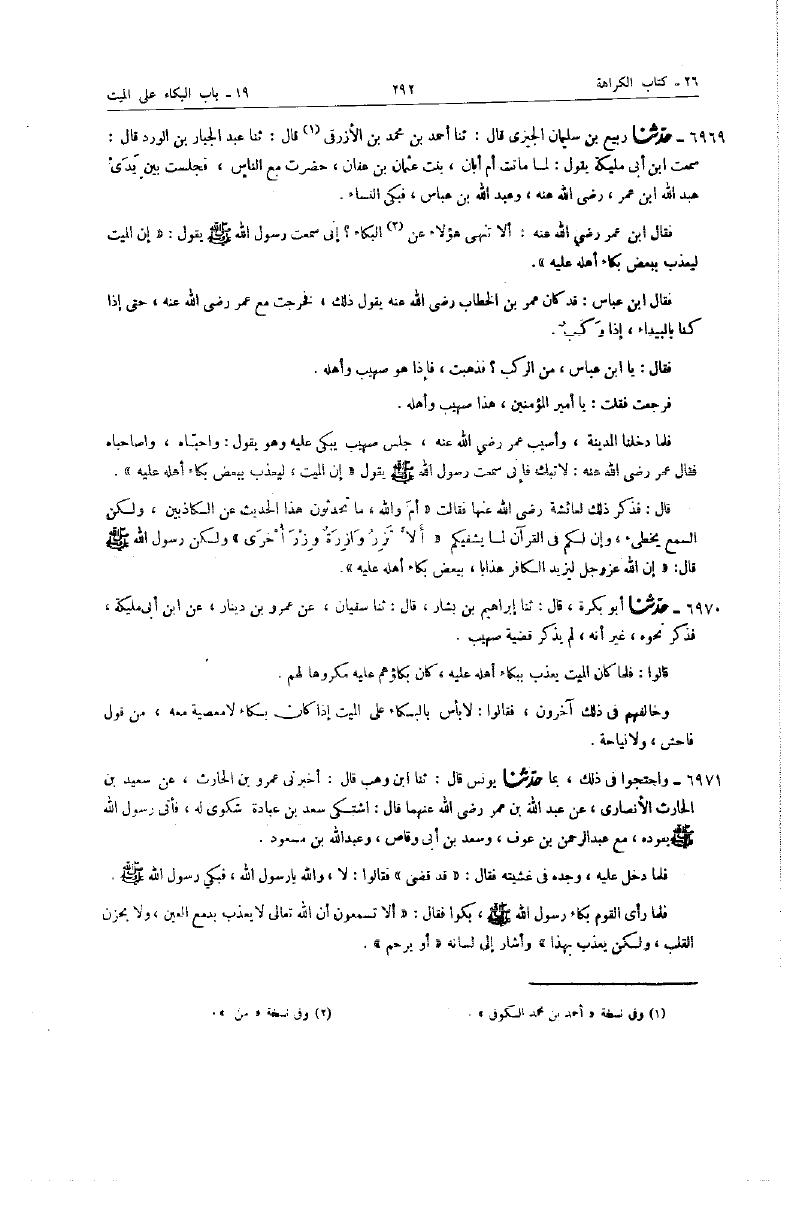 ٢٦ - كتاب الكراهة ٢٩٢ ١٩ - باب البكاء على الميت
٦٩٦٩ - حدثنا ربيع بن سليمان الجيزى قال : ثنا أحمد بن محمد بن الأزرق (١) قال : ثنا عبد الجبار بن الورد قال :
سمعت ابن أبى مليكة يقول : لما ماتت أم أبان ، بنت عثمان بن عفان ، حضرت مع الناس ، فجلست بين يَدَىْ
عبد الله ابن عمر ، رضى الله عنه ، وعبد الله بن عباس ، فبكى النساء .
فقال ابن عمر رضي الله عنه : ألا تنهى هؤلاء عن (٢) البكاء ؟ إنى سمعت رسول الله ﷺ يقول : « إن الميت
ليعذب ببعض بكاء أهله عليه » .
فقال ابن عباس : قد كان عمر بن الخطاب رضى الله عنه يقول ذلك ، فخرجت مع عمر رضى الله عنه ، حتى إذا
كنا بالبيداء ، إذا رَكْبٌ .
فقال : يا ابن عباس ، من الركب ؟ فذهبت ، فإذا هو صهيب وأهله .
فرجعت فقلت : يا أمير المؤمنين ، هذا صهيب وأهله .
فلما دخلنا المدينة ، وأصيب عمر رضي الله عنه ، جلس صهيب يبكى عليه وهو يقول : واحبّاه ، واصاحباه
فقال عمر رضى الله عنه : لا تبك فإنى سمعت رسول الله ﷺ يقول « إن الميت ، ليعذب ببعض بكاء أهله عليه » .
قال : فذكر ذلك لعائشة رضي الله عنها فقالت « أم والله ، ما تحدثون هذا الحديث عن الكاذبين ، ولكن
السمع يخطىء ، وإن لكم فى القرآن لما يشفيكم « أَلاَّ تَزِرُ وَازِرَةٌ وِزْرَ أُخْرَى » ولكن رسول الله ﷺ
قال : « إن الله عزوجل ليزيد الكافر عذابا ، ببعض بكاء أهله عليه » .
٦٩٧٠ - حدثنا أبو بكرة ، قال : ثنا إبراهيم بن بشار ، قال : ثنا سفيان ، عن عمرو بن دينار ، عن ابن أبى مليكة ،
فذكر نحوه ، غير أنه ، لم يذكر قضية صهيب .
قالوا : فلما كان الميت يعذب ببكاء أهله عليه ، كان بكاؤهم عليه مكروها لهم .
وخالفهم فى ذلك آخرون ، فقالوا : لا بأس بالبكاء على الميت إذا كان بكاء لا معصية معه ، من قول
فاحش ، ولا نياحة .
٦٩٧١ - واحتجوا فى ذلك ، بما حدثنا يونس قال : ثنا ابن وهب قال : أخبرنى عمرو بن الحارث ، عن سعيد بن
الحارث الأنصارى ، عن عبد الله بن عمر رضى الله عنهما قال : اشتكى سعد بن عبادة شكوى له ، فأتى رسول الله
ﷺ يعوده ، مع عبدالرحمن بن عوف ، وسعد بن أبى وقاص ، وعبدالله بن مسعود .
فلما دخل عليه ، وجده فى غشيته فقال : « قد قضى » فقالوا : لا ، والله يارسول الله ، فبكى رسول الله ﷺ .
فلما رأى القوم بكاء رسول الله ﷺ ، بكوا فقال : « ألا تسمعون أن الله تعالى لا يعذب بدمع العين ، ولا بحزن
القلب ، ولكن يعذب بهذا » وأشار إلى لسانه « أو يرحم » .
(١) وفى نسخة « أحمد بن محمد الكوفى » . (٢) وفى نسخة « من » .